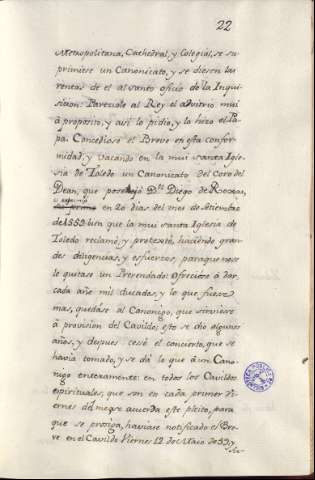 22
Metropolitana, Cathedral, y Colegial, se su
primiese un Canonicato, y se diesen las
rentas de el al santo oficio de la Inqui
sicion: Pareziole al Rey el advitrio mui
à proposito, y asi lo pidio, y lo hizo el Pa
pa. Concediose el Breve en esta confor
midad, y vacando en la mui santa Igle
sia de Toledo un Canonicato del Coro del
Dean, que posehia Dn. Diego de
en 20 dias del mes de
de 1559 bien que la mui santa Iglesia de
Toledo reclamò, y protextò, haciendo gran
des diligencias, y esfuerzos, para que no se
le quitase un Prevendado: Ofreciere à dar
cada año mil ducados, y lo que fuese
mas, quedase al Canonigo, que sirviese
à provision del Cavildo; esto se dio algunos
años, y despues cesò el concierto, que se
havia tomado, y se dà lo que à un Cano
nigo enteramente: en todos los Cavildos
espirituales, que son en cada primer vi
ernes del mes se acuerda este pleito, para
que se prosiga, haviase notificado el Bre
ve en el Cavildo Viernes 12 de Maio de 59, y